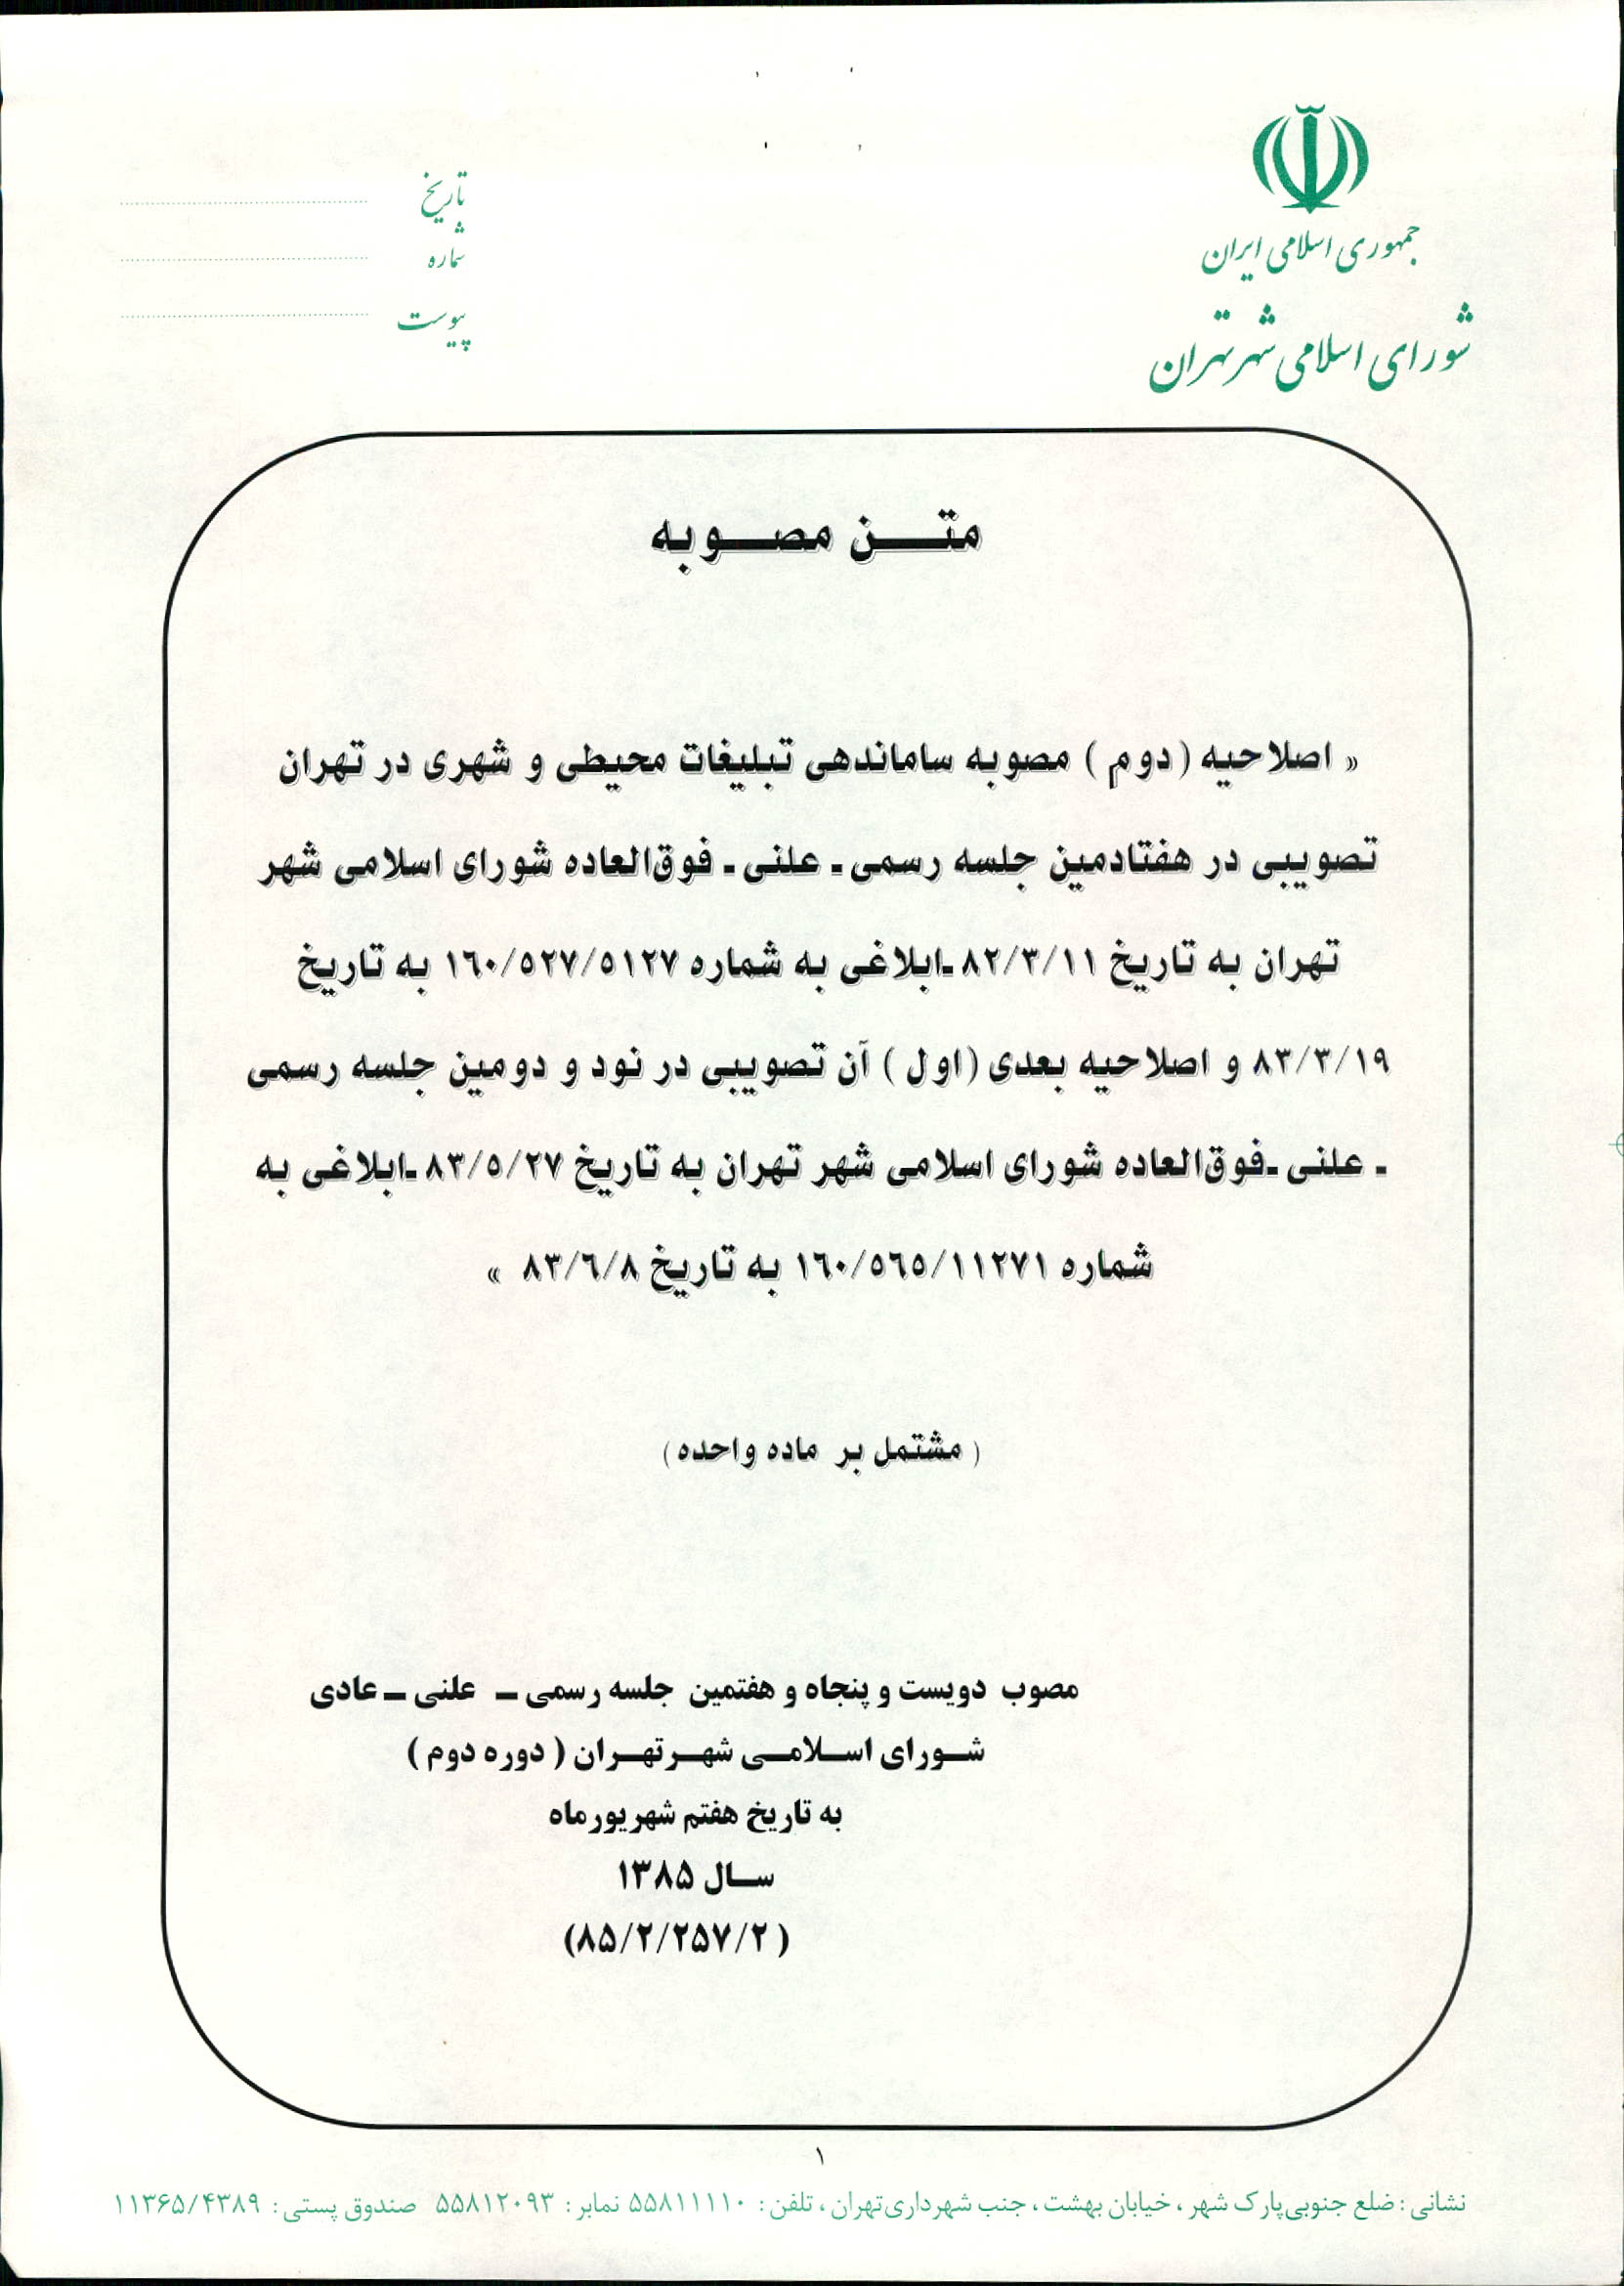 جمهوری اسلامی ایران
شورای اسلامی شهر تهران
تاریخ
شماره
پیوست
متن مصوبه
« اصلاحیه (دوم ) مصوبه ساماندهی تبلیغات محیطی و شهری در تهران
تصویبی در هفتادمین جلسه رسمی ـ علنی ـ فوق‌العاده شورای اسلامی شهر
تهران به تاریخ ۸۲/۳/۱۱ ـابلاغی به شماره ۱۶۰/۵۲۷/۵۱۲۷ به تاریخ
۸۳/۳/۱۹ و اصلاحیه بعدی (اول ) آن تصویبی در نود و دومین جلسه رسمی
ـ علنی ـفوق‌العاده شورای اسلامی شهر تهران به تاریخ ۸۳/۵/۲۷ ـابلاغی به
شماره ۱۶۰/۵۶۵/۱۱۲۷۱ به تاریخ ۸۳/۶/۸ »
( مشتمل بر ماده واحده )
مصوب دویست و پنجاه و هفتمین جلسه رسمی – علنی – عادی
شورای اسلامی شهر تهران ( دوره دوم )
به تاریخ هفتم شهریور ماه
سال ۱۳۸۵
(۸۵/۲/۲۵۷/۲ )
۱
نشانی : ضلع جنوبی پارک شهر ، خیابان بهشت ، جنب شهرداری تهران ، تلفن : ۵۵۸۱۱۱۱۰ نمابر : ۵۵۸۱۲۰۹۳ صندوق پستی : ۱۱۳۶۵/۴۳۸۹